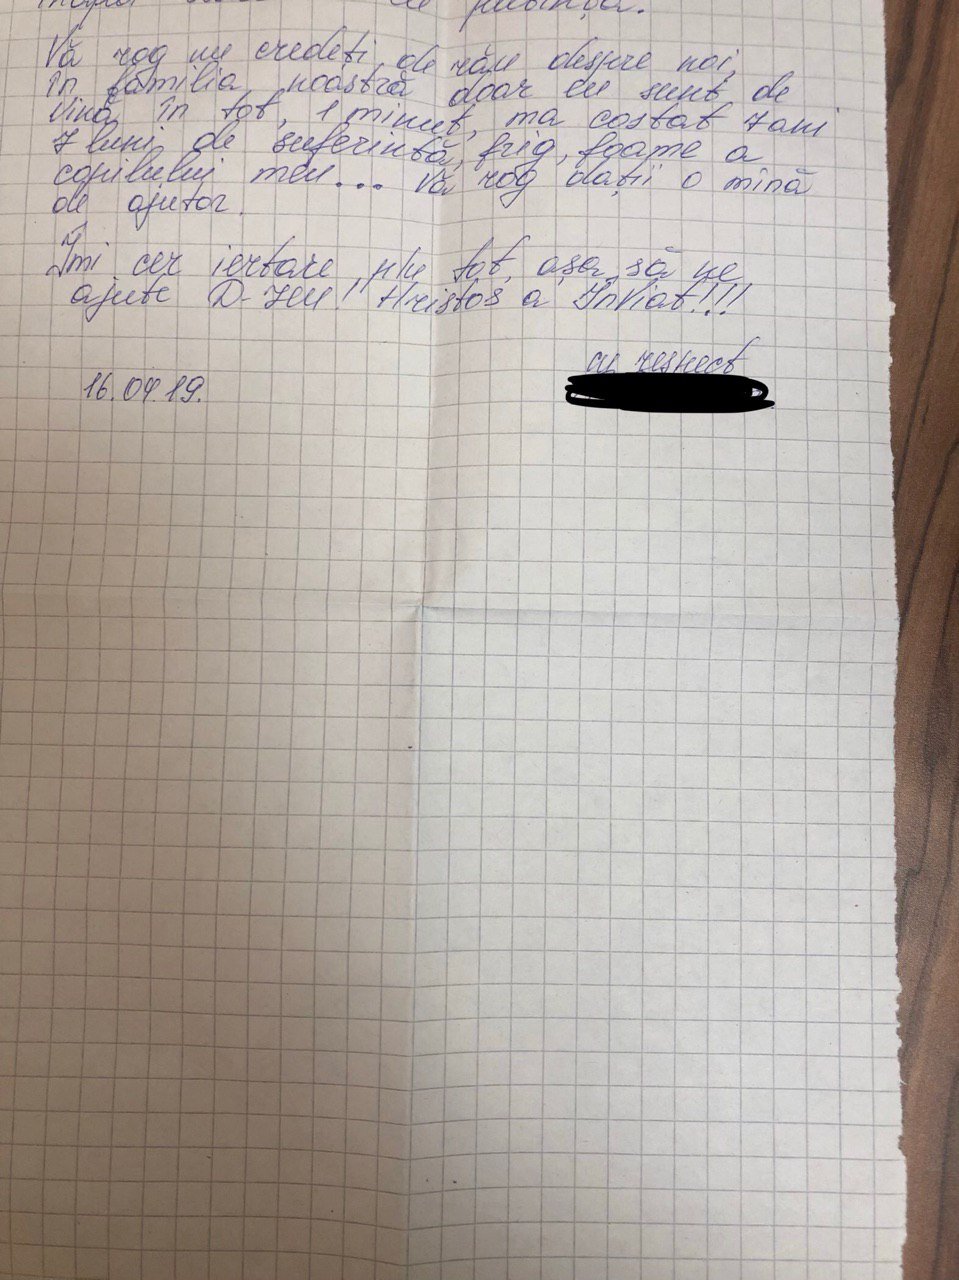 cu putință.
Vă rog nu credeți de rău despre noi,
în familia noastră doar eu sunt de
vină în tot, 1 minut, ma costat 7 ani
7 luni de suferință, frig, foame a
copilului meu... Vă rog dații o mînă
de ajutor.
Îmi cer iertare p/u tot, așa să ne
ajute D-zeu! Hristos a Înviat!!!
cu respect
16.04.19.